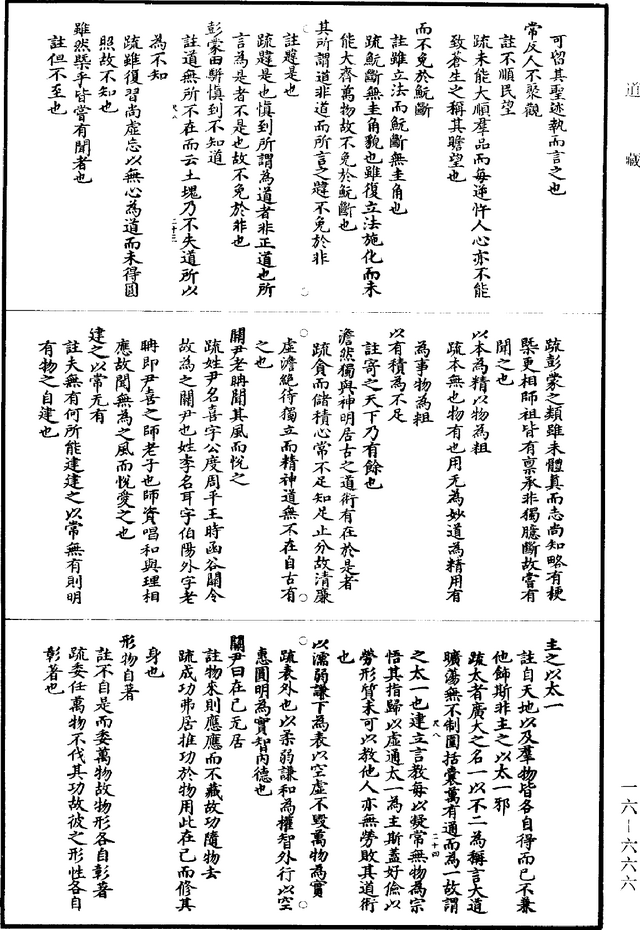 道藏
可留其聖迹執而言之也
常反人不聚觀
註不順民望
疏未能大順羣品而每逆忤人心亦不能
致蒼生之稱其瞻望也
而不免於魭斷
註雖立法而魭斷無圭角也
疏魭斷無圭角貌也雖復立法施化而未
能大齊萬物故不免於魭斷也
其所謂道非道而所言之韙不免於非
註韙是也
疏韙是也慎到所謂為道者非正道也所
言為是者不是也故不免於非也
彭蒙田駢慎到不知道
註道無所不在而云土塊乃不失道所以
尺八 二十三
為不知
疏雖復習尚虛忘以無心為道而未得圓
照故不知也
雖然槩乎皆嘗有聞者也
註但不至也
疏彭蒙之類雖未體真而志尚知略有梗
槩更相師祖皆有稟承非獨臆斷故嘗有
聞之也
以本為精以物為粗
疏本無也物有也用无為妙道為精用有
為事物為粗
以有積為不足
註寄之天下乃有餘也
澹然獨與神明居古之道術有在於是者
疏貪而儲積心常不足知足止分故清廉
虛澹絕待獨立而精神道無不在自古有
之也
關尹老聃聞其風而悅之
疏姓尹名喜字公度周平王時函谷關令
故為之關尹也姓李名耳字伯陽外字老
聃即尹喜之師老子也師資唱和與理相
應故聞無為之風而悅愛之也
建之以常无有
註夫無有何所能建建之以常無有則明
有物之自建也
主之以太一
註自天地以及羣物皆各自得而已不兼
他飾斯非主之以太一邪
疏太者廣大之名一以不二為稱言大道
曠蕩無不制圍括囊萬有通而為一故謂
尺八 二十四
之太一也建立言教每以凝常無物為宗
悟其指歸以虛通太一為主斯蓋好儉以
勞形質未可以教他人亦無勞敗其道術
也
以濡弱謙下為表以空虛不毀萬物為實
疏表外也以柔弱謙和為權智外行以空
惠圓明為實智內德也
關尹曰在己无居
註物來則應應而不藏故功隨物去
疏成功弗居推功於物用此在己而修其
身也
形物自著
註不自是而委萬物故物形各自彰著
疏委任萬物不伐其功故彼之形性各自
彰著也
一六—六六六